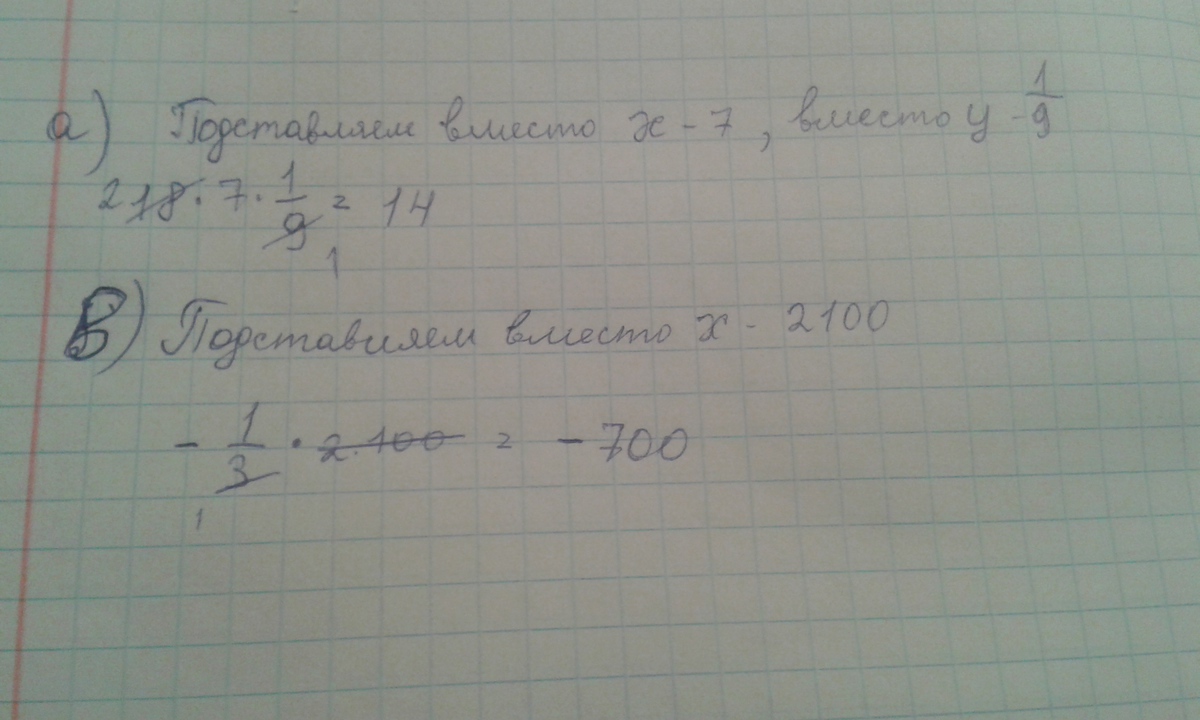 а) Подставляем вместо x - 7, вместо y - 1/9
2 18 · 7 · 1/9 = 14
1
В) Подставляем вместо x - 2100
- 1/3 · 2100 = - 700
1